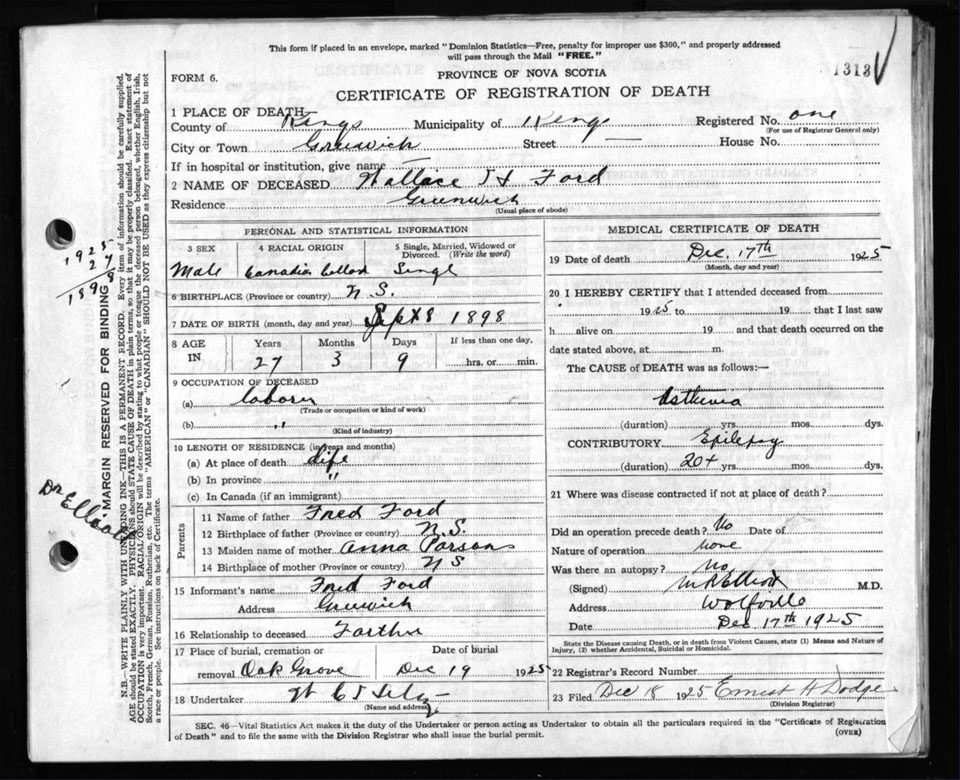 This form if placed in an envelope, marked "Dominion Statistics—Free, penalty for improper use $300," and properly addressed
will pass through the Mail "FREE."
FORM 6.
PROVINCE OF NOVA SCOTIA
1313
CERTIFICATE OF REGISTRATION OF DEATH
1 PLACE OF DEATH—
County of Kings Municipality of Kings Registered No. one
(For use of Registrar General only)
City or Town Greenwich Street — House No.
If in hospital or institution, give name —
2 NAME OF DECEASED Wallace Ford
Residence Greenwich
(Usual place of abode)
PERSONAL AND STATISTICAL INFORMATION
3 SEX 4 RACIAL ORIGIN 5 Single, Married, Widowed or Divorced. (Write the word)
Male Canadian Single
6 BIRTHPLACE (Province or country) N.S.
7 DATE OF BIRTH (month, day and year) Sept 8 1898
8 AGE IN Years Months Days If less than one day,
27 3 9 hrs. or min.
9 OCCUPATION OF DECEASED
(a) laborer
(Trade or occupation or kind of work)
(b) "
(Kind of industry)
10 LENGTH OF RESIDENCE (in years and months)
(a) At place of death life
(b) In province "
(c) In Canada (if an immigrant)
Parents
11 Name of father Fred Ford
12 Birthplace of father (Province or country) N.S.
13 Maiden name of mother Anna Parsons
14 Birthplace of mother (Province or country) N S
15 Informant's name Fred Ford
Address Greenwich
16 Relationship to deceased Farther
17 Place of burial, cremation or removal Oak Grove Date of burial Dec 19 1925
18 Undertaker
(Name and address)
MEDICAL CERTIFICATE OF DEATH
19 Date of death Dec. 17th 1925
(Month, day and year)
20 I HEREBY CERTIFY that I attended deceased from
1925 to 19 that I last saw
h alive on 19 and that death occurred on the
date stated above, at m.
The CAUSE of DEATH was as follows:—
Asthenia
(duration) yrs. mos. dys.
CONTRIBUTORY Epilepsy
(duration) 20+ yrs. mos. dys.
21 Where was disease contracted if not at place of death?
Did an operation precede death? No Date of
Nature of operation none
Was there an autopsy? No
(Signed) M.D.
Address Wolfville
Date Dec 17th 1925
State the Disease causing Death, or in death from Violent Causes, state (1) Means and Nature of
Injury, (2) whether Accidental, Suicidal or Homicidal.
22 Registrar's Record Number
23 Filed Dec 18 1925 Ernest H Dodge
(Division Registrar)
SEC. 46—Vital Statistics Act makes it the duty of the Undertaker or person acting as Undertaker to obtain all the particulars required in the "Certificate of Registration
of Death" and to file the same with the Division Registrar who shall issue the burial permit.
(OVER)
MARGIN RESERVED FOR BINDING
N.B.—WRITE PLAINLY WITH UNFADING INK—THIS IS A PERMANENT RECORD. Every item of information should be carefully supplied.
AGE should be stated EXACTLY. PHYSICIANS should STATE CAUSE OF DEATH in plain terms, so that it may be properly classified. Exact statement of
OCCUPATION is very important. RACIAL ORIGIN will be described by stating to what people or tongue the deceased person belonged, whether English, Irish,
Scotch, French, German, Russian, Ruthenian, etc. The terms "AMERICAN" or "CANADIAN" SHOULD NOT BE USED as they express citizenship but not
a race or people. See instructions on back of Certificate.
1925
27
1898
Dr Elliott